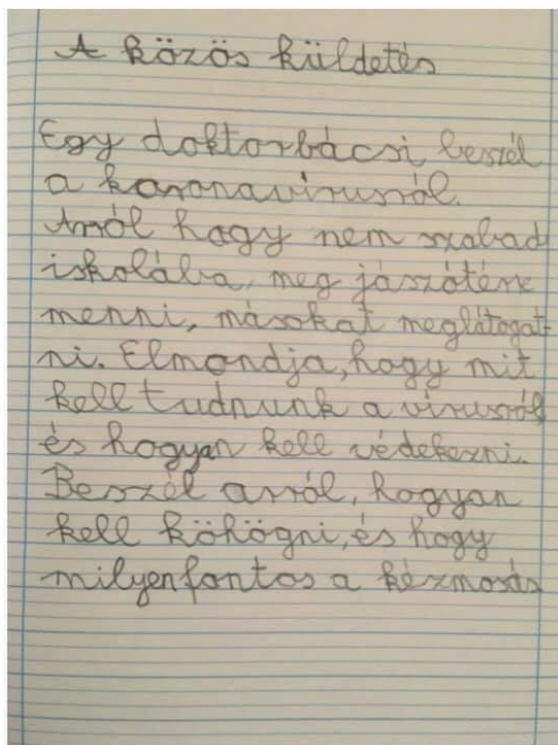 A közös küldetés
Egy doktorbácsi beszél
a koronavírusról.
Arról hogy nem szabad
iskolába, meg jászótérre
menni, másokat meglátogat-
ni. Elmondja, hogy mit
kell tudnunk a vírusról
és hogyan kell védekezni.
Beszél arról, hogyan
kell köhögni, és hogy
milyen fontos a kézmosás